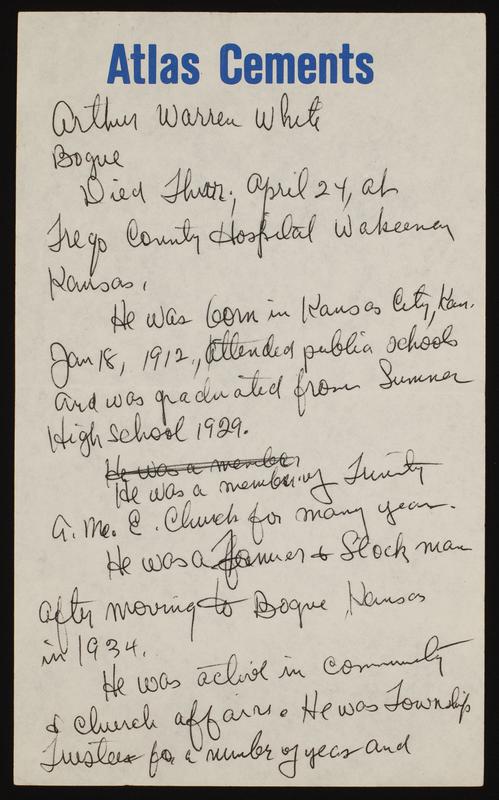 Atlas Cements
Arthur Warren White
Bogue
Died Thur; April 24, at
Trego County Hospital Wakeeney
Kansas.
He was born in Kansas City, Kan.
Jan 18, 1912., Attended public schools
and was graduated from Sumner
High School 1929.
He was a member
He was a member of Trinity
A. Me. E. Church for many year.
He was a Farmer & Stock man
after moving to Bogue, Kansas
in 1934.
He was active in community
& church affairs. He was Township
Trustee for a number of years and